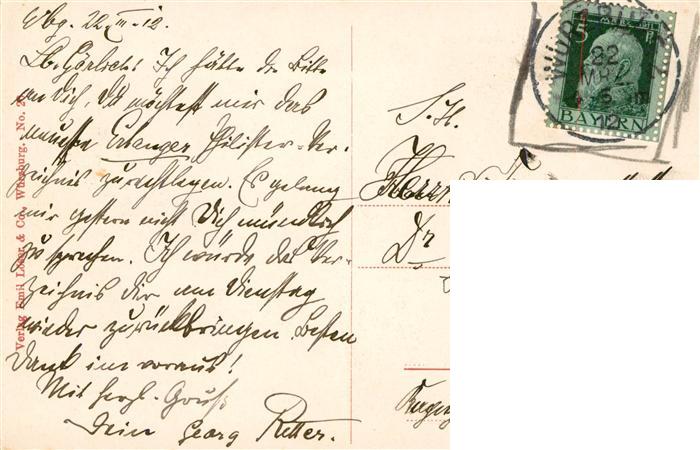 Wbg. 22.III.12.
Lb. Görlich! Ich hätte die Bitte
an Dich, Du möchtest mir das
neueste Erlanger Philister-Ver-
zeichnis zurechtlegen. Es gelang
mir gestern nicht Dich mündlich
zu sprechen. Ich würde das Ver-
zeichnis dir am Dienstag
wieder zurückbringen. Besten
Dank im voraus!
Mit herzl. Gruß
Dein Georg Ritter.
Verlag Emil Löser & Co., Würzburg. - No.
S. H.
Herrn
Dr
5 Pf.
BAYERN
WÜRZBURG
22
MRZ
12